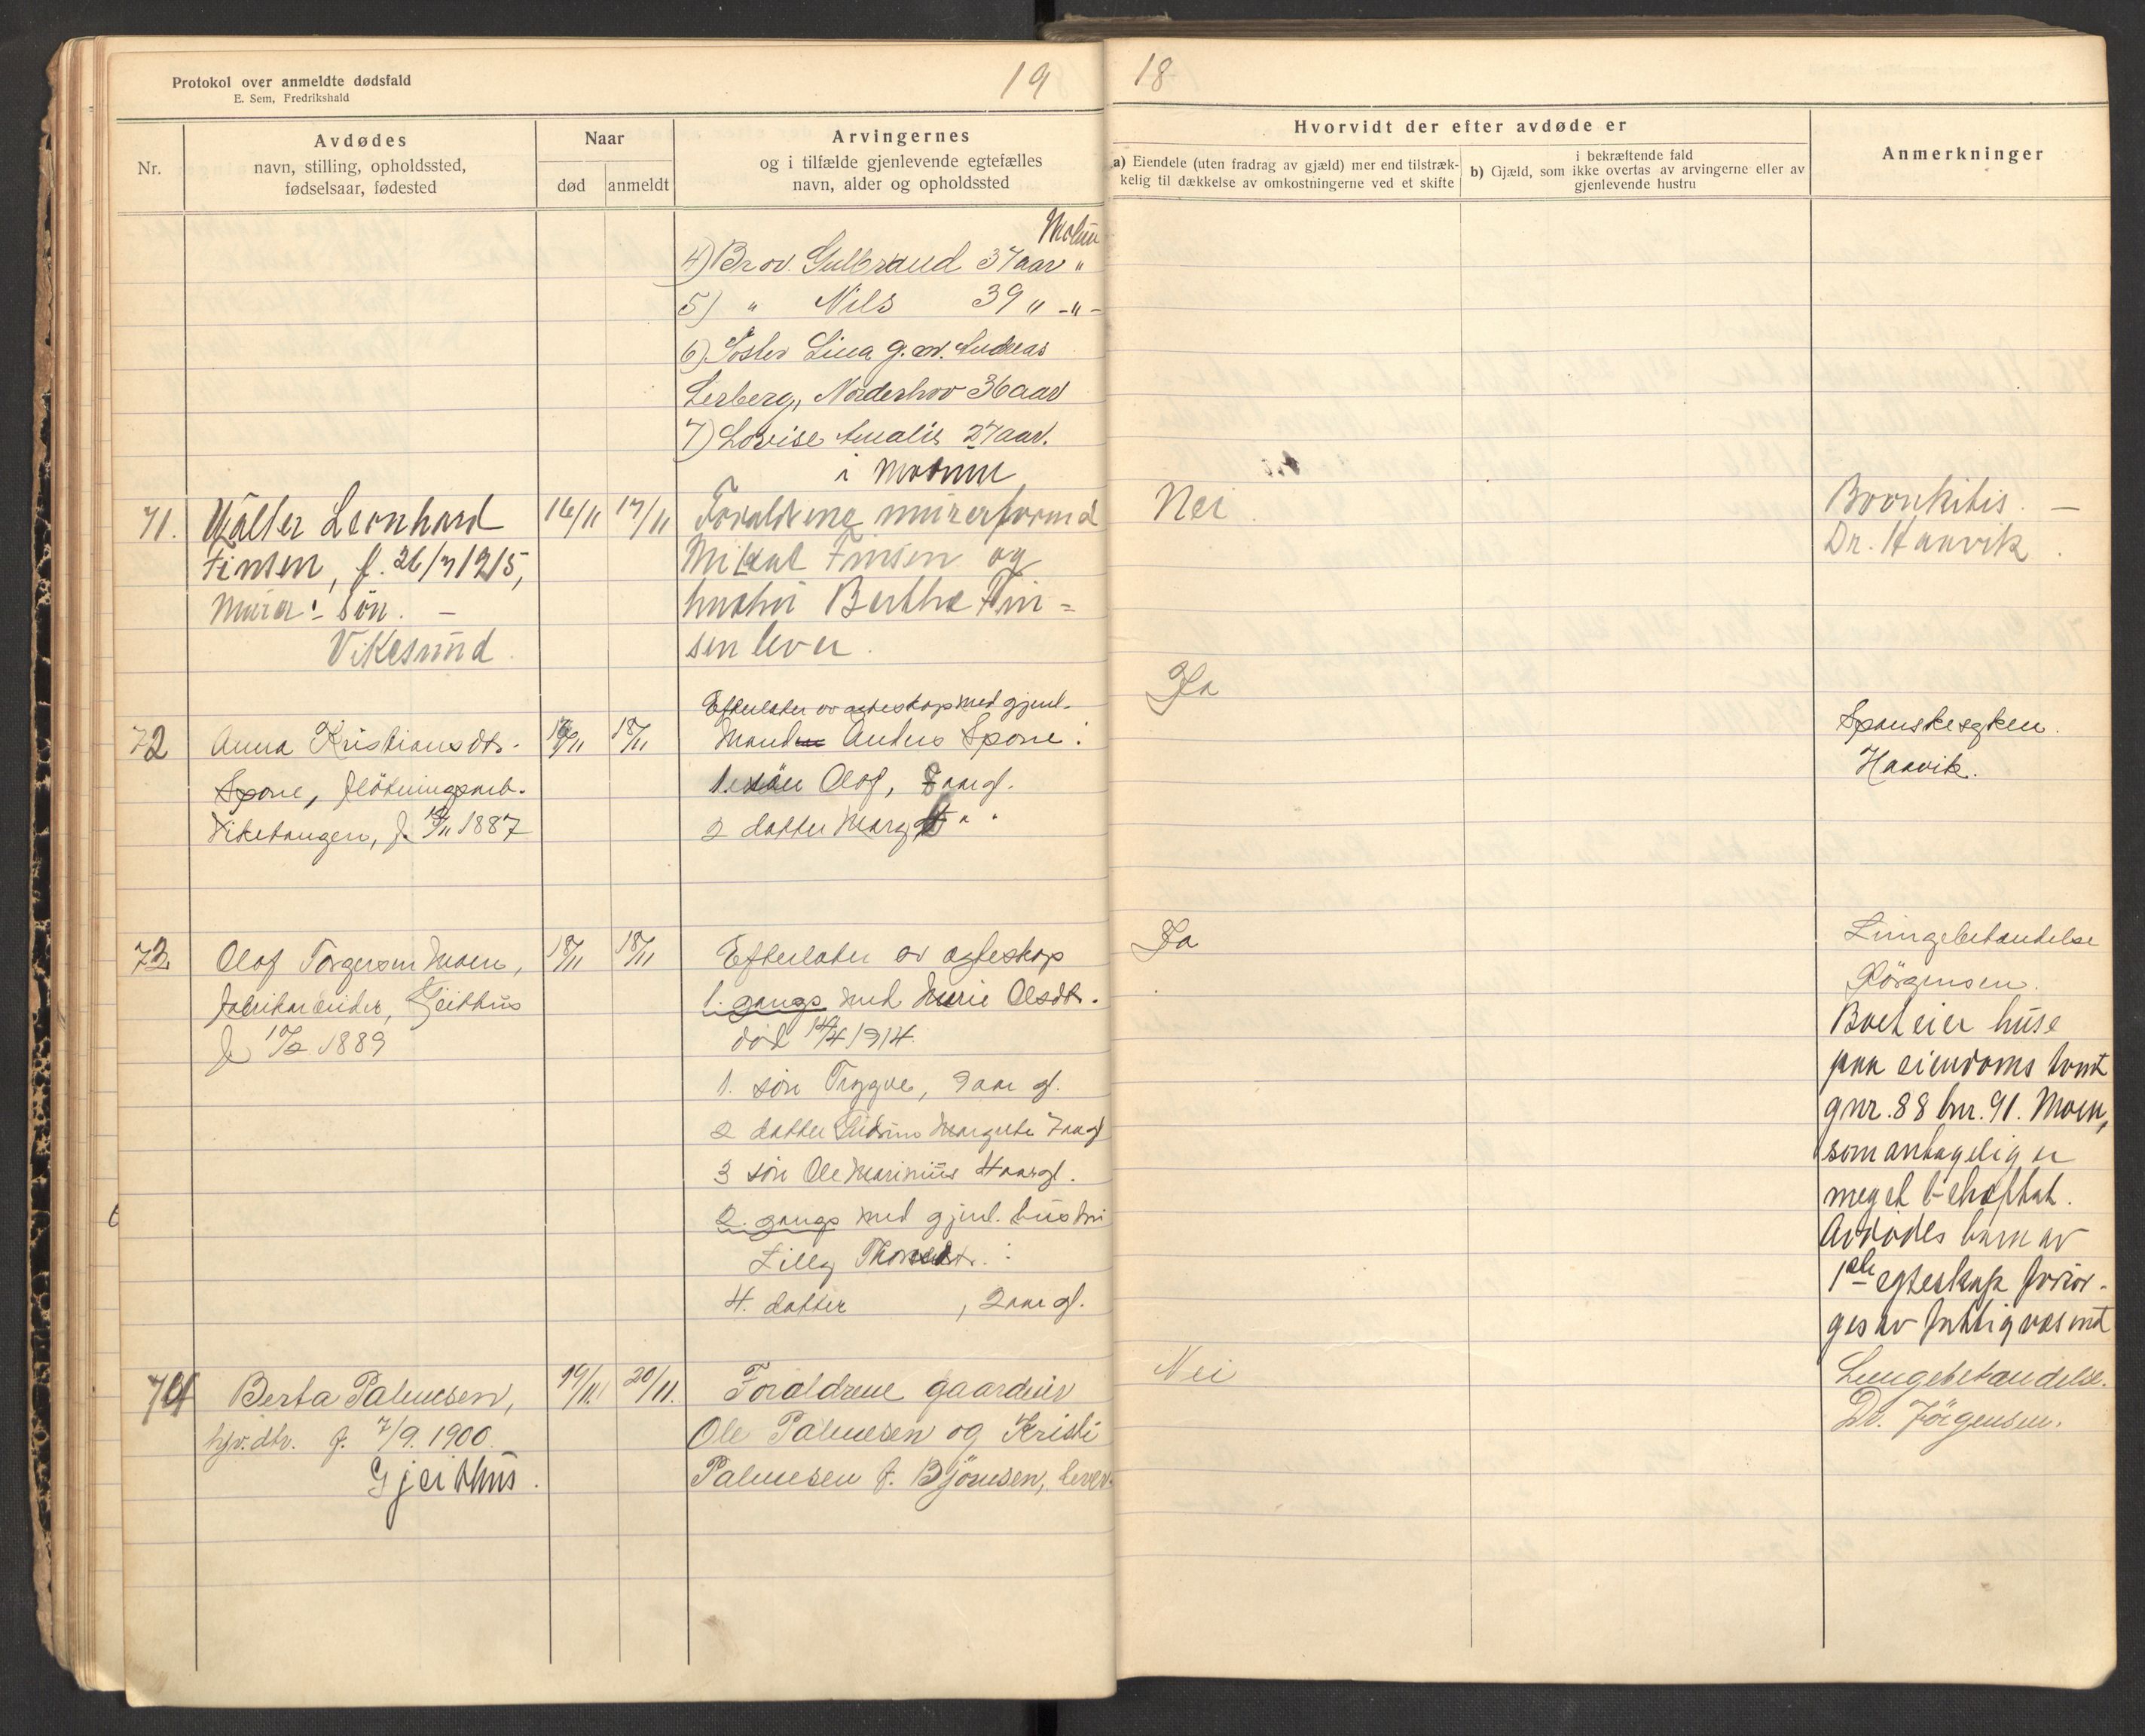 Protokol over anmeldte dødsfald
E. Sem, Fredrikshald
19
Nr.
Avdødes
navn, stilling, opholdssted,
fødselsaar, fødested
Naar
død
anmeldt
Arvingernes
og i tilfælde gjenlevende egtefælles
navn, alder og opholdssted
Modum
4) Bror Gulbrand 37 aar "
5) " Nils 39 " -"-
6) Søster Lina g. m. Andreas
Lerberg, Norderhov 36 aar
7) Lovise Amalie 27 aar.
i Modum
71. Walter Leonhard
Finsen, f. 26/7 1915,
Murer: søn. —
Vikesund.
16/11 17/11
Forældrene murerformd
Mikael Finsen og
hustru Berthe Fin=
sen lever.
72 Anna Kristiansdtr.
Spone, fløtningsarb.
Viketangen, f. /11 1887
/11 18/11
Efterlater av ægteskap med gjenl.
Mand Anders Spone:
1. søn Olof, 7 aar gl.
2 datter Marg " "
73 Olof Torgersen Moen,
fabrikarbeider, Geithus
f 1889
18/11 18/11
Efterlater av ægteskap
1. gangs med Marie Olsdtr.
død 14/4 1914.
1. søn Trygve, 9 aar gl.
2 datter Gudrun Margrete 7 aar gl
3 søn Ole Marinius 4 aar gl.
2. gangs med gjenl. hustru
Lilly :
4. datter , 2 aar gl.
74 Berta Palmesen,
hjv. dtr. f. 7/9. 1900.
Gjeithus.
19/11. 20/11.
Forældrene gaardeier
Ole Palmesen og Kristi
Palmesen f. Bjørnsen, lever.
18
Hvorvidt der efter avdøde er
a) Eiendele (uten fradrag av gjæld) mer end tilstræk-
kelig til dækkelse av omkostningerne ved et skifte
i bekræftende fald
b) Gjæld, som ikke overtas av arvingerne eller av
gjenlevende hustru
Anmerkninger
Nei
Bronkitis. —
Dr. Haavik.
Ja
Spanskesyken.
Haavik.
Ja
Lungebetændelse
Jörgensen.
Boet eier huse
paa eiendoms tomt
gnr. 88 bnr. 91. Moen,
som antagelig er
meget behæftet.
Avdødes barn av
1ste egteskap forsør-
ges av fattigvæsenet
Nei
Lungebetændelse.
Dr. Jörgensen.